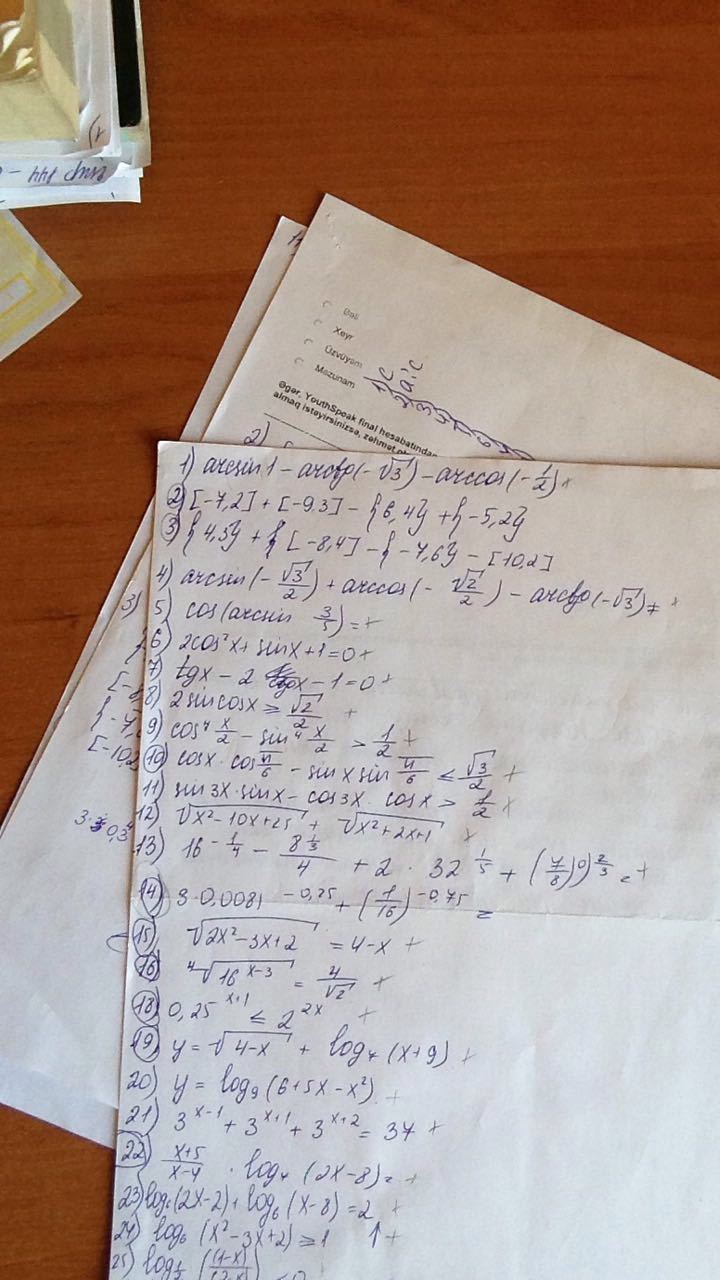 Bəli
Xeyr
Üzvüyəm
Məzunam
Əgər, YouthSpeak final hesabatından
almaq istəyirsinizsə, zəhmət
2)
3)
1) arcsin1 - arctg(-√3) - arccos(-1/2) +
2) [-7,2] + [-9.3] - {6,4} + {-5,2}
3) {4,3} + { [-8,4] - {-7,6} - [10,2]
4) arcsin(-√3/2) + arccos(-√2/2) - arctg(-√3) = +
5) cos(arcsin 3/5) = +
6) 2cos²x + sinx + 1 = 0 +
7) tgx - 2 ctgx - 1 = 0 +
8) 2 sin cosx ≥ √2/2 +
9) cos⁴ x/2 - sin⁴ x/2 > 1/2 +
10) cosx · cos π/6 - sinx sin π/6 ≤ √3/2 +
11) sin3x · sinx - cos3x · cosx > 1/2 +
12) √(x²-10x+25) + √(x²+2x+1) x
13) 16^(-1/4) - 8^(1/3)/4 + 2 · 32^(1/5) + (7/8)^0)^(2/3) = +
14) 3·0,0081^(-0,25) + (1/16)^(-0,75) =
15) √(2x²-3x+2) = 4-x +
16) ⁴√(16^(x-3)) = 4/√2 +
18) 0,25^(x+1) ≤ 2^(2x) +
19) y = √(4-x) + log₄(x+9) +
20) y = log₉(6+5x-x²) +
21) 3^(x-1) + 3^(x+1) + 3^(x+2) = 37 +
22) (x+5)/(x-4) · log₄(2x-8) = +
23) log₆(2x-2) + log₆(x-8) = 2 +
24) log₆(x²-3x+2) ≥ 1 ↑ +
25) log